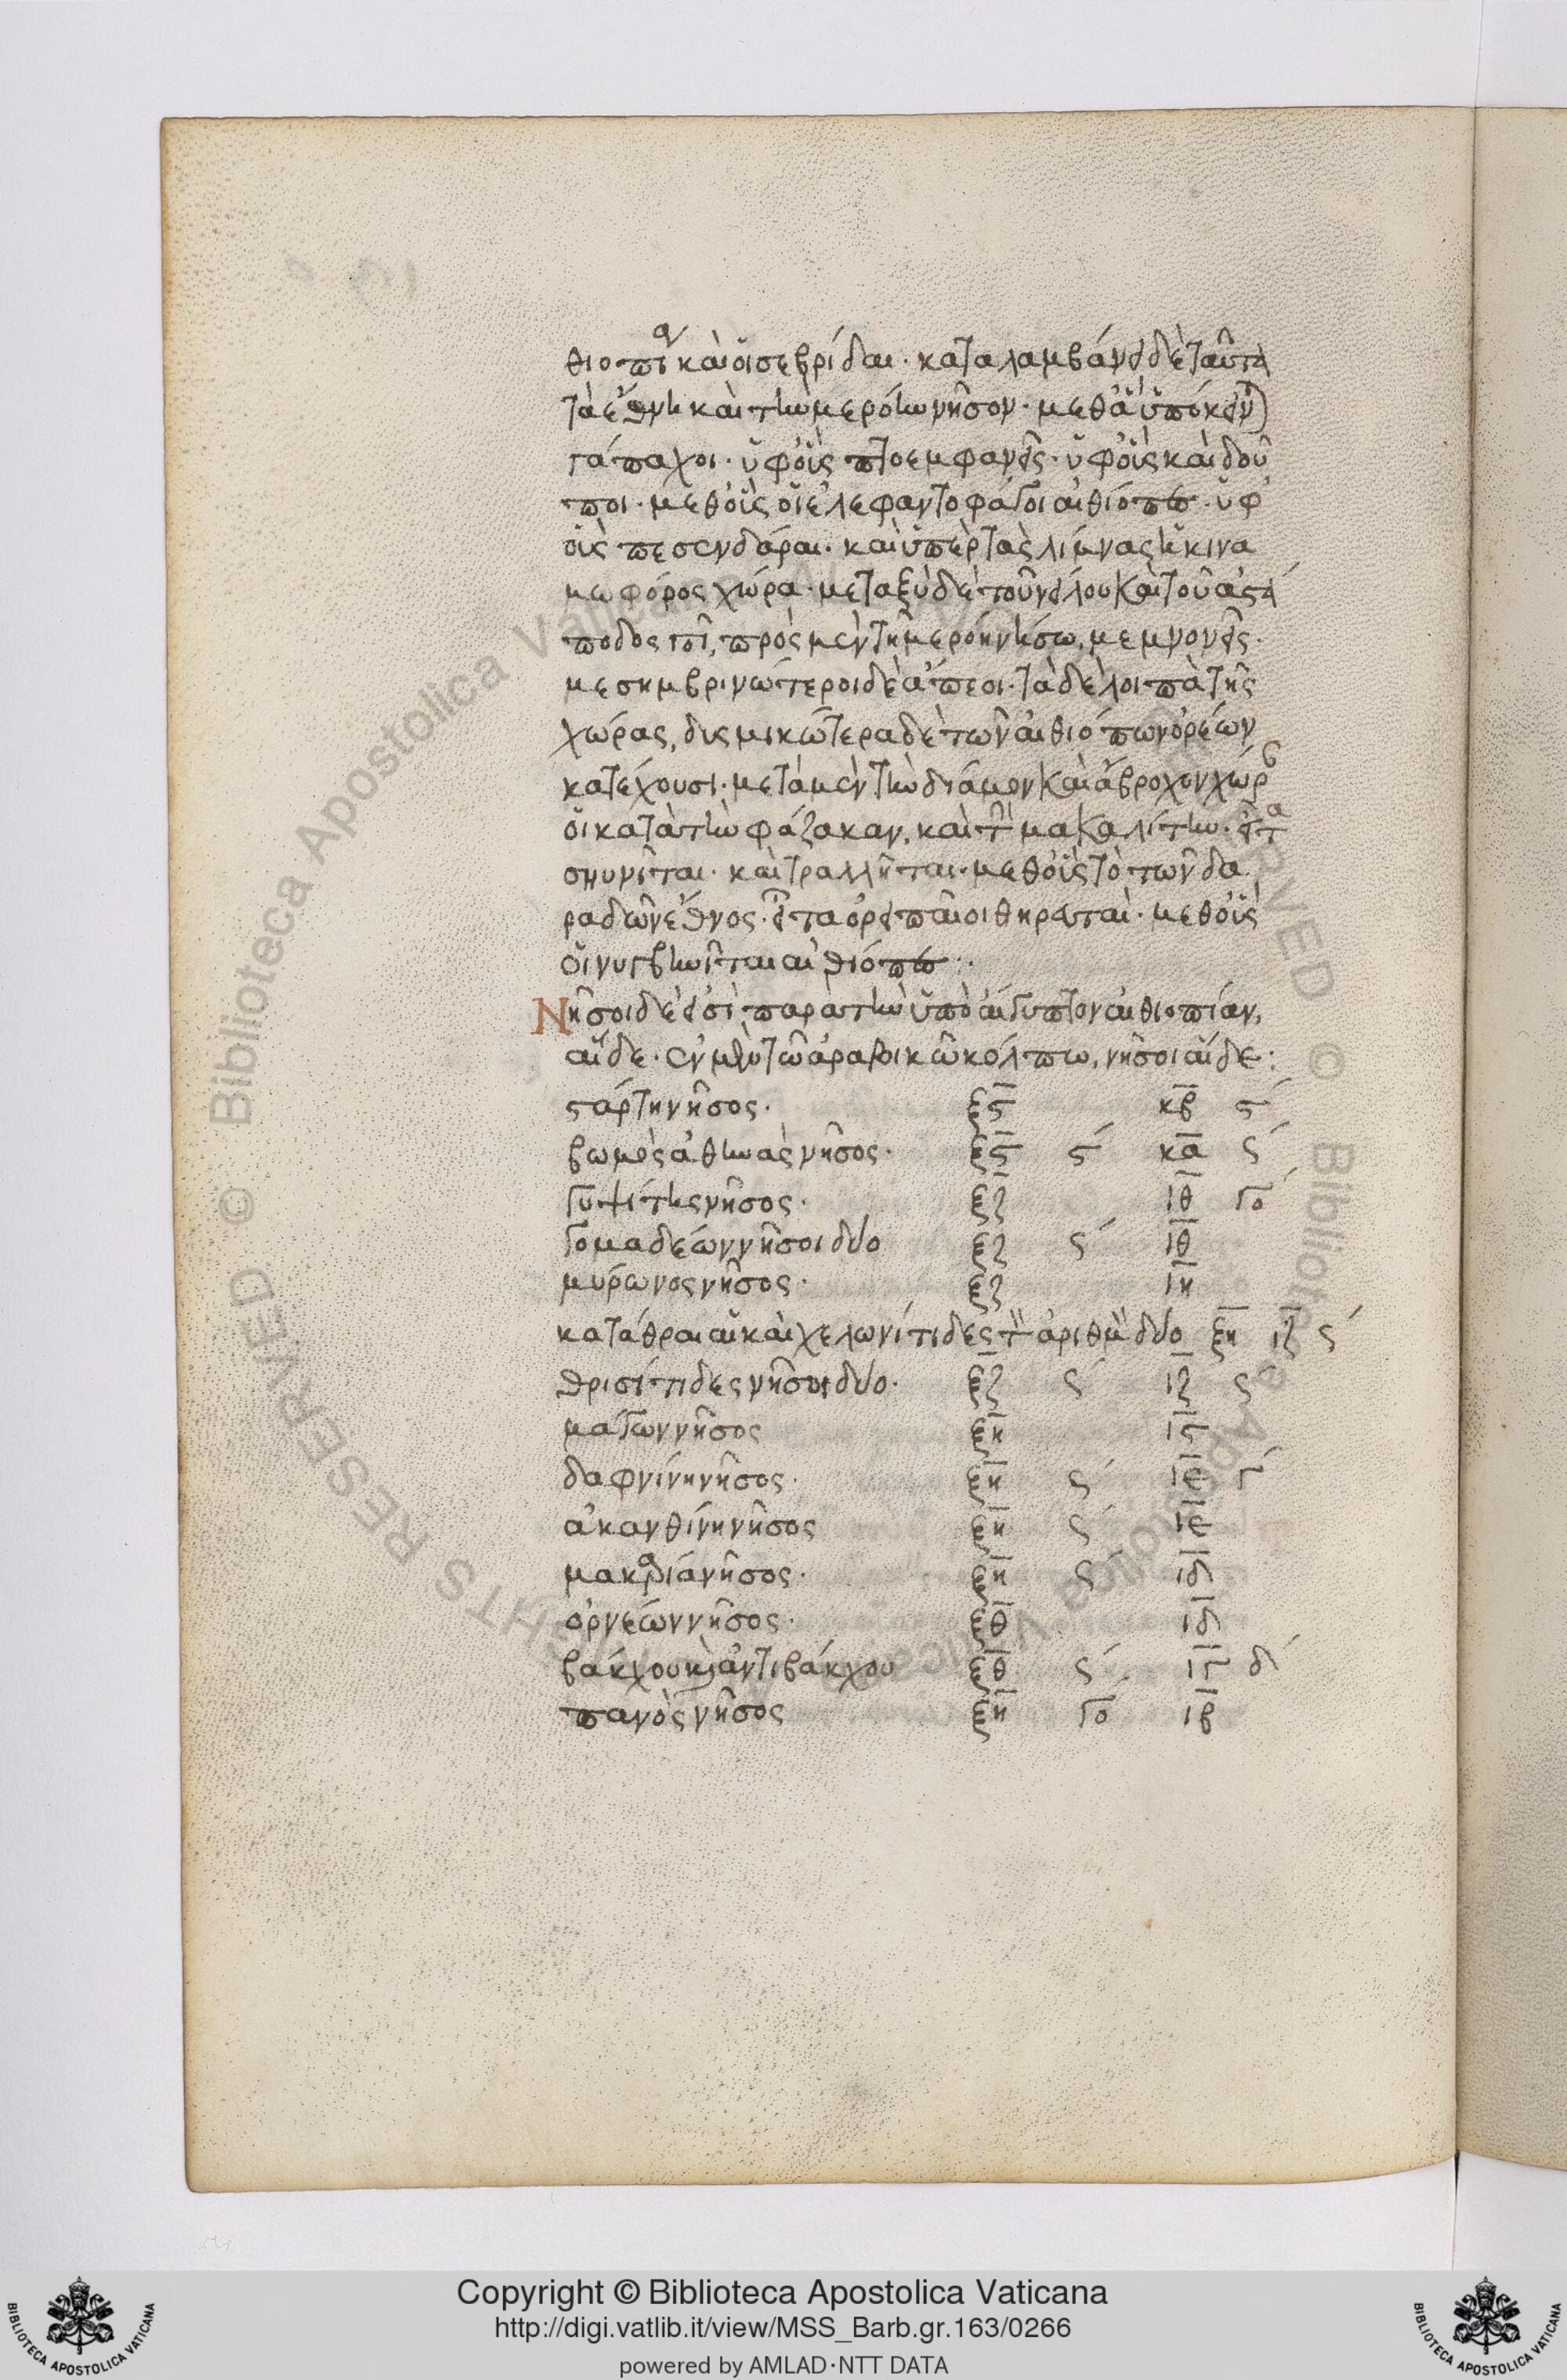 θιοπίαν καὶ οἱ σεβρίδαι· καταλαμβάνει δὲ ταῦτα
τὰ ἔθνη καὶ τὴν μερόην νῆσον· μεθ' ἃ ὑπόκειν)
γάπαχοι· ὑφ' οἷς πτοεμφανεῖς· ὑφ' οἷς καὶ δοῦ
ποι· μεθ' οἷς οἱ ἐλεφαντοφάγοι αἰθίοπες· ὑφ'
οἷς πεσενδάραι· καὶ ὑπὲρ τὰς λίμνας ἡ κινα
μωφόρος χώρα· μεταξὺ δὲ τοῦ νείλου καὶ τοῦ ἀστά
ποδος ποτ, πρὸς μὲν τῇ μερόη νήσω, μεμνονεῖς·
μεσημβρινώτεροι δὲ ἄπεοι· τὰ δὲ λοιπὰ τῆς
χώρας, δισμικώτερα δὲ τῶν αἰθιόπων ὀρέων
κατέχουσι· μετὰ μὲν τὴν διάμον καὶ ἄβροχον χώρ
οἱ κατὰ τὴν φάζακαν, καὶ τὴν μακαλίτην· εἶτα
σμυνῖται· καὶ τραλλῆται· μεθ' οἷς τὸ τῶν δα
ραδῶν ἔθνος· εἶτα ὀρειπαῖοι θηραταὶ· μεθ' οἷς
οἱ νυγβηνῖται αἰθίοπες :·
Νῆσοι δὲ εἰσὶ παρὰ τὴν ὑπὸ αἴγυπτον αἰθιοπίαν,
αἵδε· ἐν μὲν τῶ ἀραβικῶ κόλπω, νῆσοι αἵδε :
στάρτη νῆσος· ξϛ κβ ϛ
βωμὸς ἀθηνᾶς νῆσος· ξϛ ϛ κα ϛ
γυψίτης νῆσος· ξζ ιθ γο
γομαδεών νῆσοι δύο ξζ ϛ ιθ
μυρώνος νῆσος· ξζ ιη
κατάθραι αἱ καὶ χελωνίτιδες τ ἀριθμ δύο ξη ιζ ϛ
θρισίτιδες νῆσοι δύο· ξζ ϛ ιζ ϛ
μάγων νῆσος ξη ιϛ
δαφνίνη νῆσος· ξη ϛ ιε γ
ἀκανθίνη νῆσος ξη ϛ ιε
μακαριά νῆσος· ξη ϛ ιδ
ὀρνεών νῆσος· ξθ ιδ
βάκχου καὶ ἀντιβάκχου ξθ ϛ ιγ δ
πανὸς νῆσος ξη γο ιβ
Copyright © Biblioteca Apostolica Vaticana
http://digi.vatlib.it/view/MSS_Barb.gr.163/0266
powered by AMLAD·NTT DATA